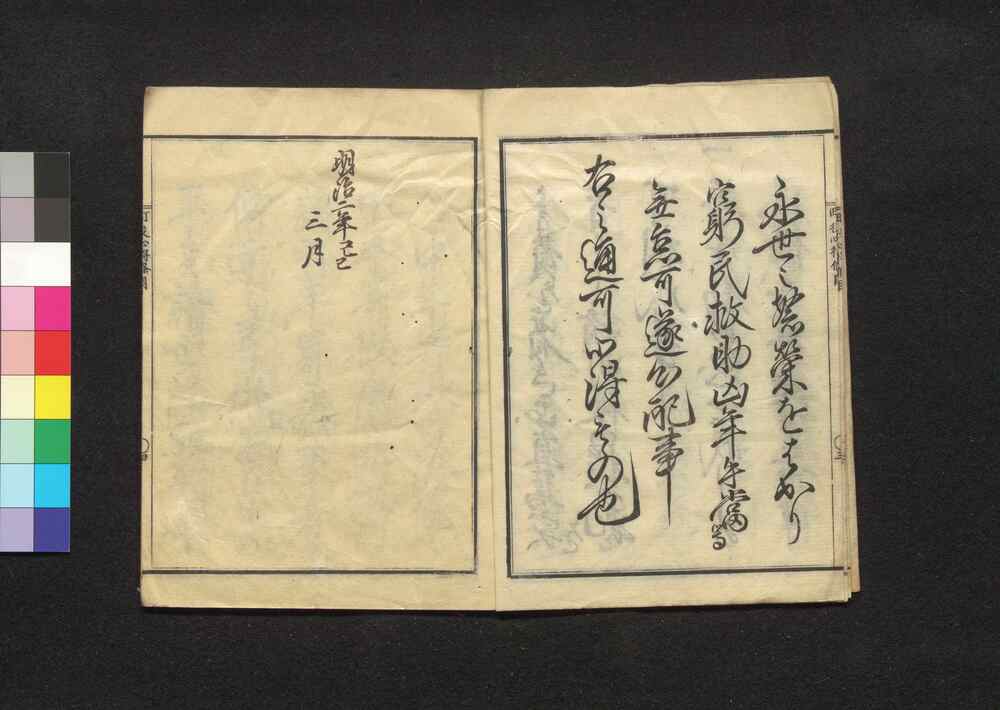 永世之繁栄をはかり
窮民救助凶年手當等
無怠可遂心配事
右之通可心得もの也
明治二年己巳
三月